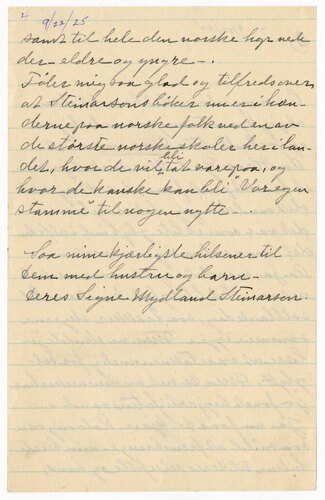 2 9/22/25
samt til hele den norske her ned
der- eldre og yngre-.
Föler mig saa glad og tilfreds over
at Steinarsons böker nu er i hæn
derne paa norske folk ned en av
de störste norske skoler her i lan-
det, hvor de vil bli tat vare paa, og
hvor de kanske kan bli "Vor egen
stamme" til nogen nytte-.
Saa mine kjærligste hilsener til
Dem med hustru og barn-
Deres Signe Mydland Steinarson.